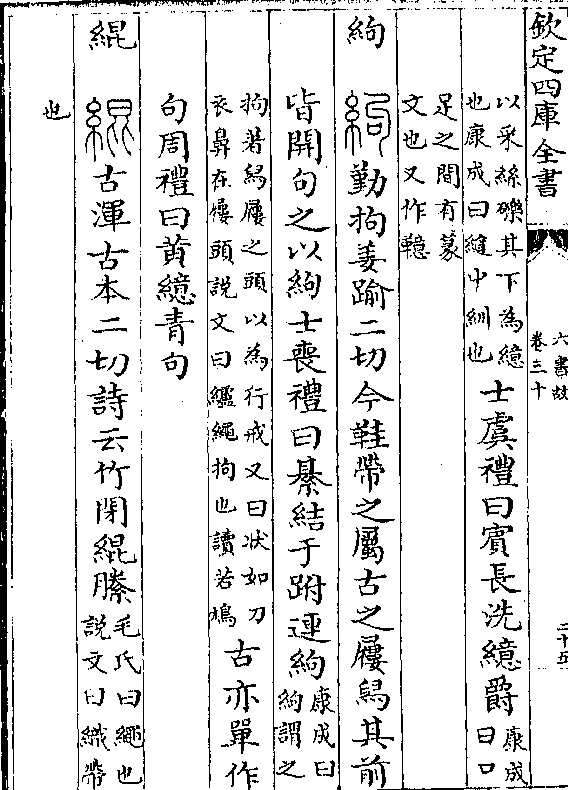 欽定四庫全書
六書故
卷三十
以采絲礫其下為繶
也康成曰縫中紃也
士虞禮曰賓長洗繶爵
康成
曰口
足之間有篆
文也又作䪰
絇
勤拘姜踰二切今鞋帶之屬古之屨舄其前
皆開句之以絇士喪禮曰綦結于跗連絇
康成曰
絇謂之
拘若舄屨之頭以為行戒又曰状如刀
衣鼻在屨頭説文曰纑繩拘也讀若鳩
古亦單作
句周禮曰黄繶青句
緄
古渾古本二切詩云竹閉緄縢
毛氏曰繩也
説文曰織帶
也